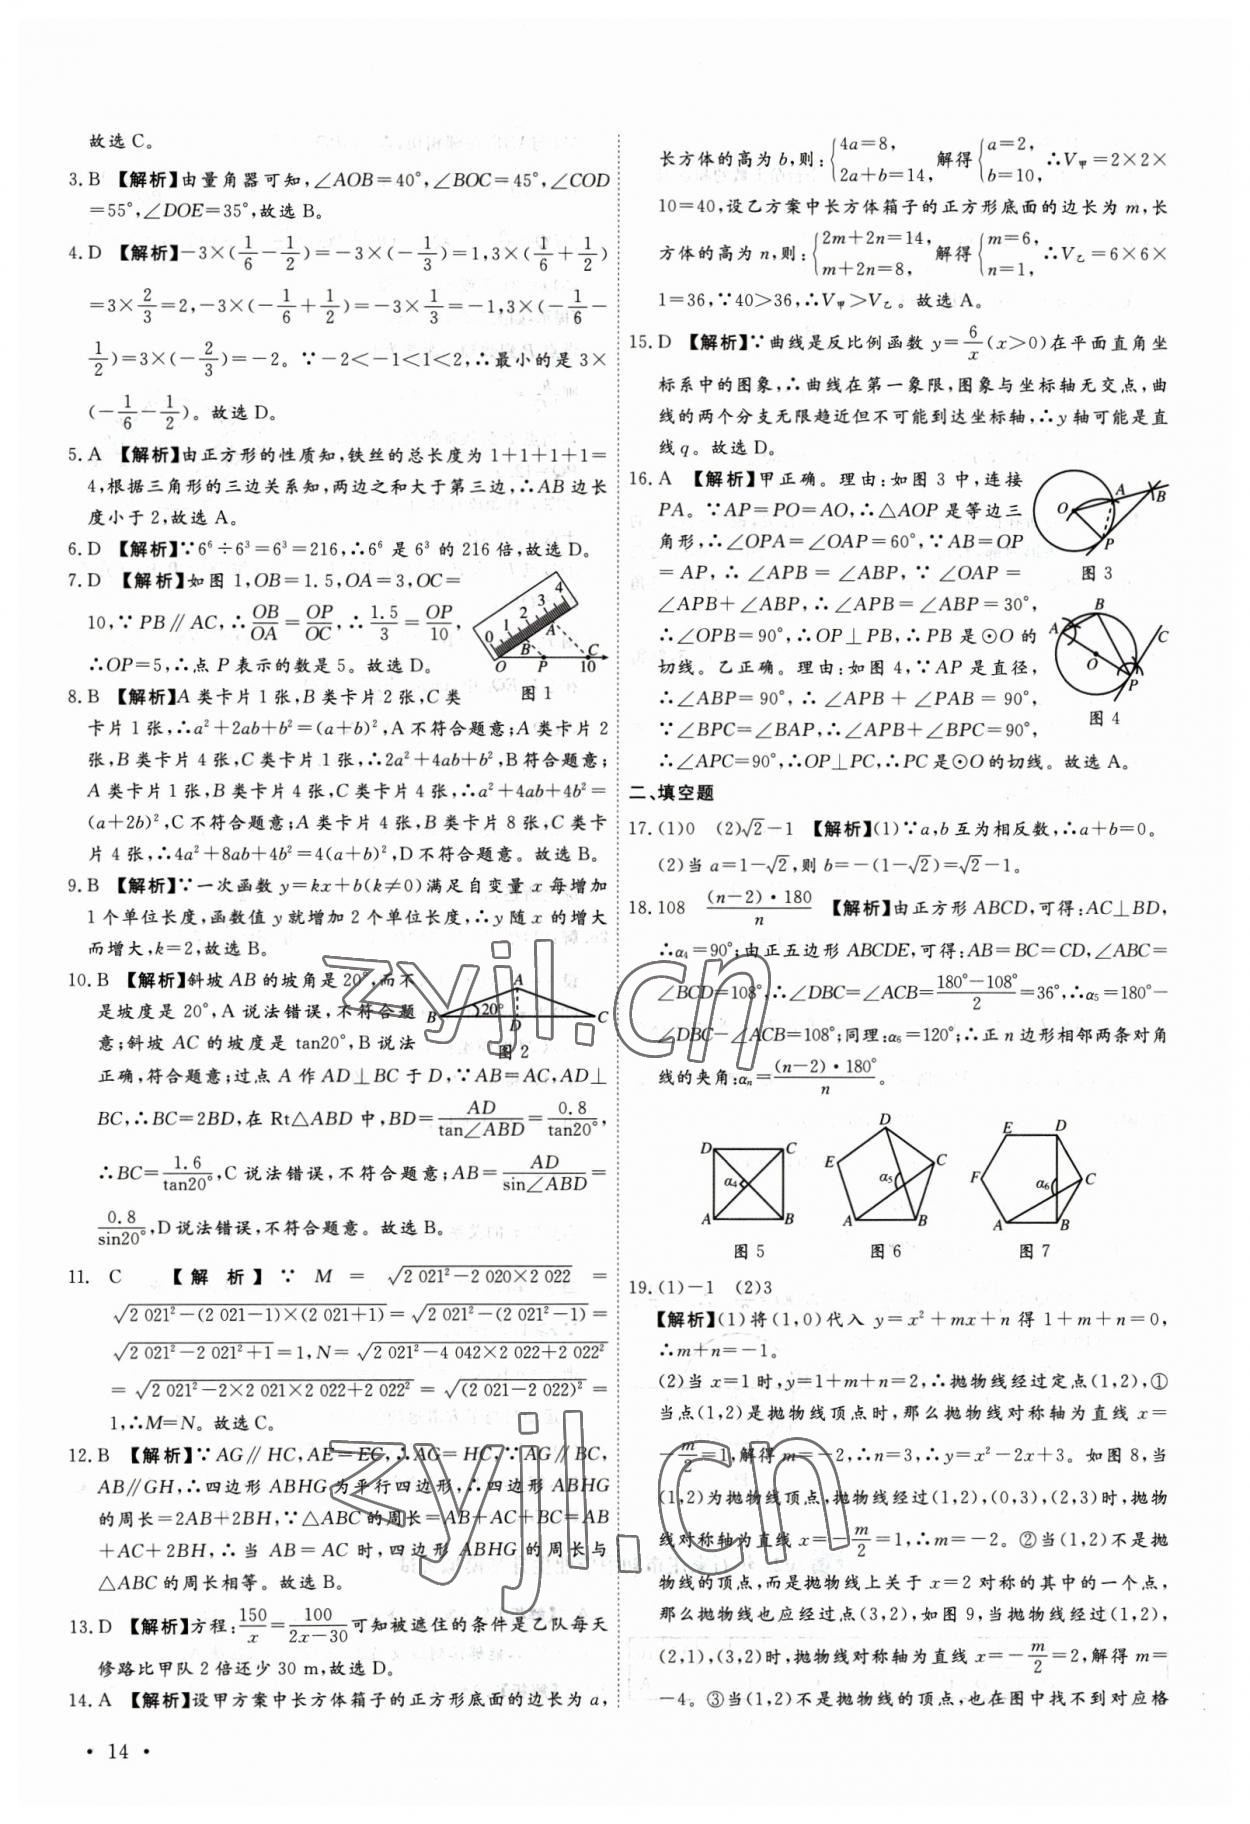 故选C。
3. B 【解析】由量角器可知,∠AOB=40°,∠BOC=45°,∠COD
=55°,∠DOE=35°,故选 B。
4. D 【解析】-3×(1/6-1/2)=-3×(-1/3)=1,3×(1/6+1/2)
=3×2/3=2,-3×(-1/6+1/2)=-3×1/3=-1,3×(-1/6-
1/2)=3×(-2/3)=-2。∵-2<-1<1<2,∴最小的是 3×
(-1/6-1/2)。故选 D。
5. A 【解析】由正方形的性质知,铁丝的总长度为 1+1+1+1=
4,根据三角形的三边关系知,两边之和大于第三边,∴AB 边长
度小于 2,故选 A。
6. D 【解析】∵6⁶÷6³=6³=216,∴6⁶ 是 6³ 的 216 倍,故选 D。
7. D 【解析】如图 1,OB=1.5,OA=3,OC=
10,∵PB∥AC,∴OB/OA=OP/OC,∴1.5/3=OP/10,
∴OP=5,∴点 P 表示的数是 5。故选 D。
0 1 2 3 4
A
B
O P 10 C
图 1
8. B 【解析】A 类卡片 1 张,B 类卡片 2 张,C 类
卡片 1 张,∴a²+2ab+b²=(a+b)²,A 不符合题意;A 类卡片 2
张,B 类卡片 4 张,C 类卡片 1 张,∴2a²+4ab+b²,B 符合题意;
A 类卡片 1 张,B 类卡片 4 张,C 类卡片 4 张,∴a²+4ab+4b²=
(a+2b)²,C 不符合题意;A 类卡片 4 张,B 类卡片 8 张,C 类卡
片 4 张,∴4a²+8ab+4b²=4(a+b)²,D 不符合题意。故选 B。
9. B 【解析】∵一次函数 y=kx+b(k≠0)满足自变量 x 每增加
1 个单位长度,函数值 y 就增加 2 个单位长度,∴y 随 x 的增大
而增大,k=2,故选 B。
10. B 【解析】斜坡 AB 的坡角是 20°,而不
是坡度是 20°,A 说法错误,不符合题
意;斜坡 AC 的坡度是 tan20°,B 说法
正确,符合题意;过点 A 作 AD⊥BC 于 D,∵AB=AC,AD⊥
A
B 20° D C
图 2
BC,∴BC=2BD,在 Rt△ABD 中,BD=AD/tan∠ABD=0.8/tan20°,
∴BC=1.6/tan20°,C 说法错误,不符合题意;AB=AD/sin∠ABD=
0.8/sin20°,D 说法错误,不符合题意。故选 B。
11. C 【解析】∵ M = √(2 021²-2 020×2 022) =
√(2 021²-(2 021-1)×(2 021+1))=√(2 021²-(2 021²-1))=
√(2 021²-2 021²+1)=1,N=√(2 021²-4 042×2 022+2 022²)
=√(2 021²-2×2 021×2 022+2 022²)=√((2 021-2 022)²)=
1,∴M=N。故选 C。
12. B 【解析】∵AG∥HC,AE=EC,∴AG=HC,∵AG∥BC,
AB∥GH,∴四边形 ABHG 为平行四边形,∴四边形 ABHG
的周长=2AB+2BH,∵△ABC 的周长=AB+AC+BC=AB
+AC+2BH,∴当 AB=AC 时,四边形 ABHG 的周长与
△ABC 的周长相等。故选 B。
13. D 【解析】方程:150/x=100/(2x-30)可知被遮住的条件是乙队每天
修路比甲队 2 倍还少 30 m,故选 D。
14. A 【解析】设甲方案中长方体箱子的正方形底面的边长为 a,
• 14 •
长方体的高为 b,则:{4a=8, 2a+b=14, 解得{a=2, b=10, ∴V甲=2×2×
10=40,设乙方案中长方体箱子的正方形底面的边长为 m,长
方体的高为 n,则:{2m+2n=14, m+2n=8, 解得{m=6, n=1, ∴V乙=6×6×
1=36,∵40>36,∴V甲>V乙。故选 A。
15. D 【解析】∵曲线是反比例函数 y=6/x(x>0)在平面直角坐
标系中的图象,∴曲线在第一象限,图象与坐标轴无交点,曲
线的两个分支无限趋近但不可能到达坐标轴,∴y 轴可能是直
线 q。故选 D。
16. A 【解析】甲正确。理由:如图 3 中,连接
PA。∵AP=PO=AO,∴△AOP 是等边三
角形,∴∠OPA=∠OAP=60°,∵AB=OP
=AP,∴∠APB=∠ABP,∵∠OAP=
∠APB+∠ABP,∴∠APB=∠ABP=30°,
∴∠OPB=90°,∴OP⊥PB,∴PB 是⊙O 的
切线。乙正确。理由:如图 4,∵AP 是直径,
∴∠ABP=90°,∴∠APB+∠PAB=90°,
∵∠BPC=∠BAP,∴∠APB+∠BPC=90°,
∴∠APC=90°,∴OP⊥PC,∴PC是⊙O 的切线。故选 A。
O A B
P
图 3
B
A C
O
P
图 4
二、填空题
17. (1)0 (2)√2-1 【解析】(1)∵a,b 互为相反数,∴a+b=0。
(2)当 a=1-√2,则 b=-(1-√2)=√2-1。
18. 108 (n-2)·180/n 【解析】由正方形 ABCD,可得:AC⊥BD,
∴α₄=90°;由正五边形 ABCDE,可得:AB=BC=CD,∠ABC=
∠BCD=108°,∴∠DBC=∠ACB=(180°-108°)/2=36°,∴α₅=180°-
∠DBC-∠ACB=108°;同理:α₆=120°;∴正 n 边形相邻两条对角
线的夹角:αₙ=(n-2)·180°/n。
D C
α₄
A B
图 5
D
E C
α₅
A B
图 6
E D
F α₆ C
A B
图 7
19. (1)-1 (2)3
【解析】(1)将(1,0)代入 y=x²+mx+n 得 1+m+n=0,
∴m+n=-1。
(2)当 x=1时,y=1+m+n=2,∴抛物线经过定点(1,2),①
当点(1,2)是抛物线顶点时,那么抛物线对称轴为直线 x=
-m/2=1,解得 m=-2,∴n=3,∴y=x²-2x+3。如图 8,当
(1,2)为抛物线顶点,抛物线经过(1,2),(0,3),(2,3)时,抛物
线对称轴为直线 x=-m/2=1,∴m=-2。②当(1,2)不是抛
物线的顶点,而是抛物线上关于 x=2 对称的其中的一个点,
那么抛物线也应经过点(3,2),如图 9,当抛物线经过(1,2),
(2,1),(3,2)时,抛物线对称轴为直线 x=-m/2=2,解得 m=
-4。③当(1,2)不是抛物线的顶点,也在图中找不到对应格
zyjl.cn
zyjl.cn